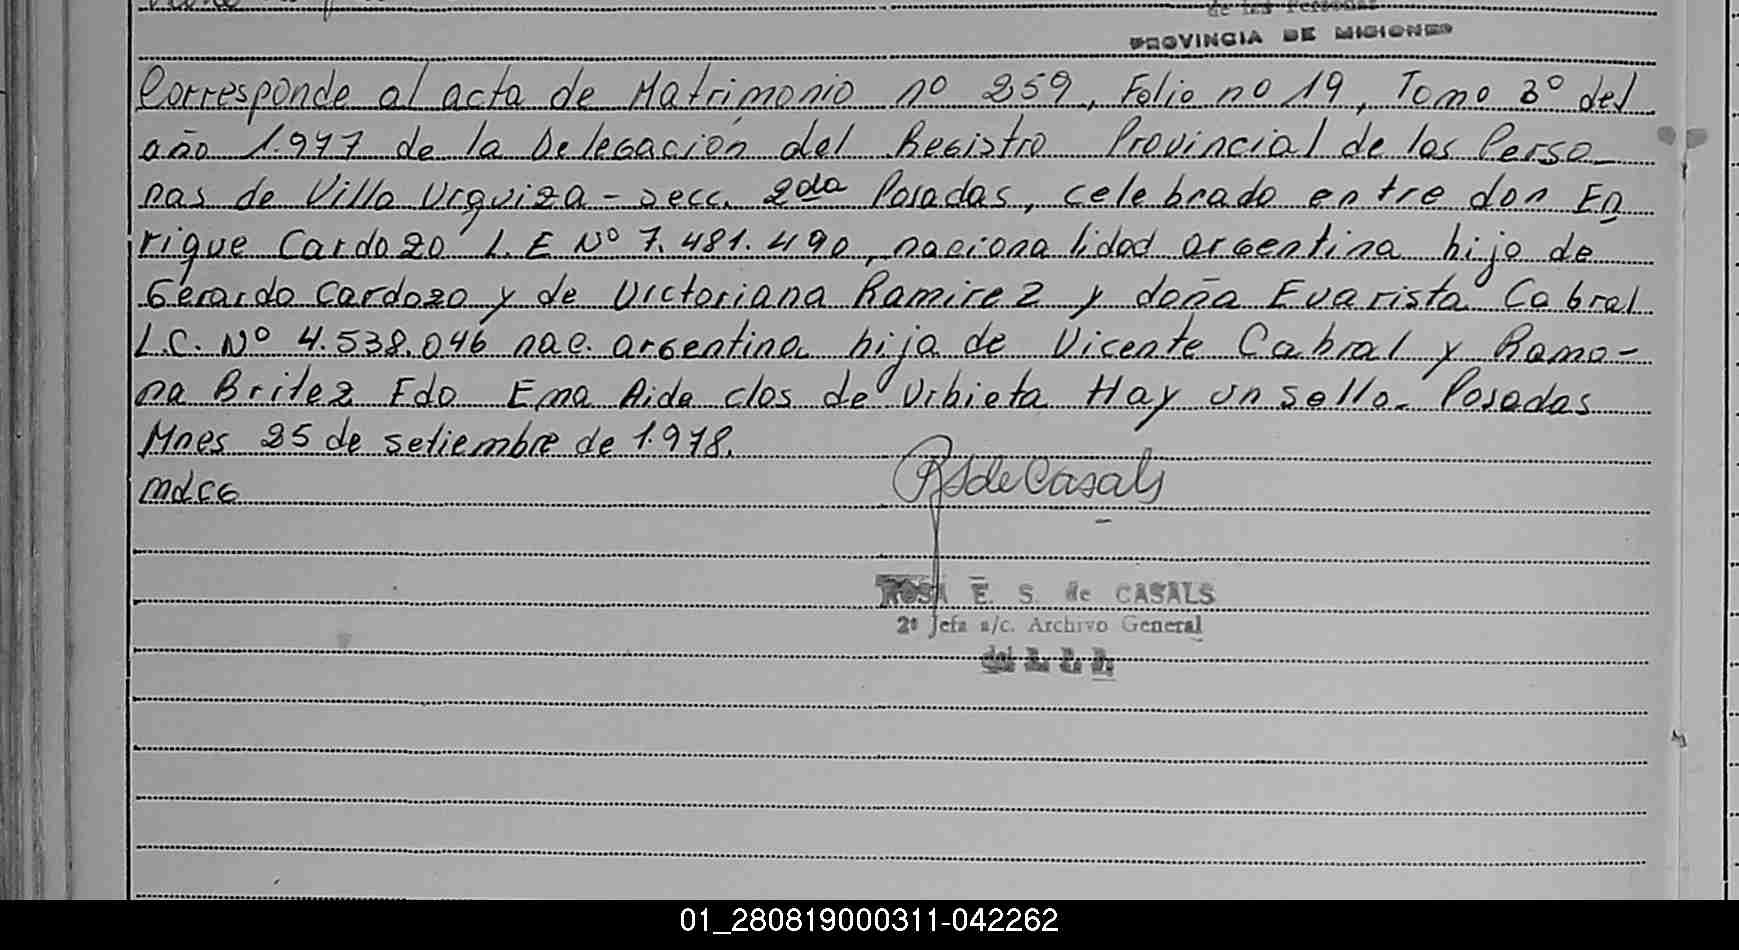 de las Personas
PROVINCIA DE MISIONES
Corresponde al acta de Matrimonio nº 259, Folio nº 19, Tomo 3º del
año 1.977 de la Delegación del Registro Provincial de las Perso_
nas de Villa Urquiza - secc. 2da Posadas, celebrado entre don En
rique Cardozo L.E Nº 7.481.490, nacionalidad argentina hijo de
Gerardo Cardozo y de Victoriana Ramirez y doña Evarista Cabral
L.C. Nº 4.538.046 nac. argentina hija de Vicente Cabral y Ramo-
na Britez Fdo Ema Aida clos de Urbieta Hay un sello. Posadas
Mnes 25 de setiembre de 1.978.
mdcg
RSdeCasals
ROSA E. S. de CASALS
2ª Jefa a/c. Archivo General
del R. P. P.
01_280819000311-042262